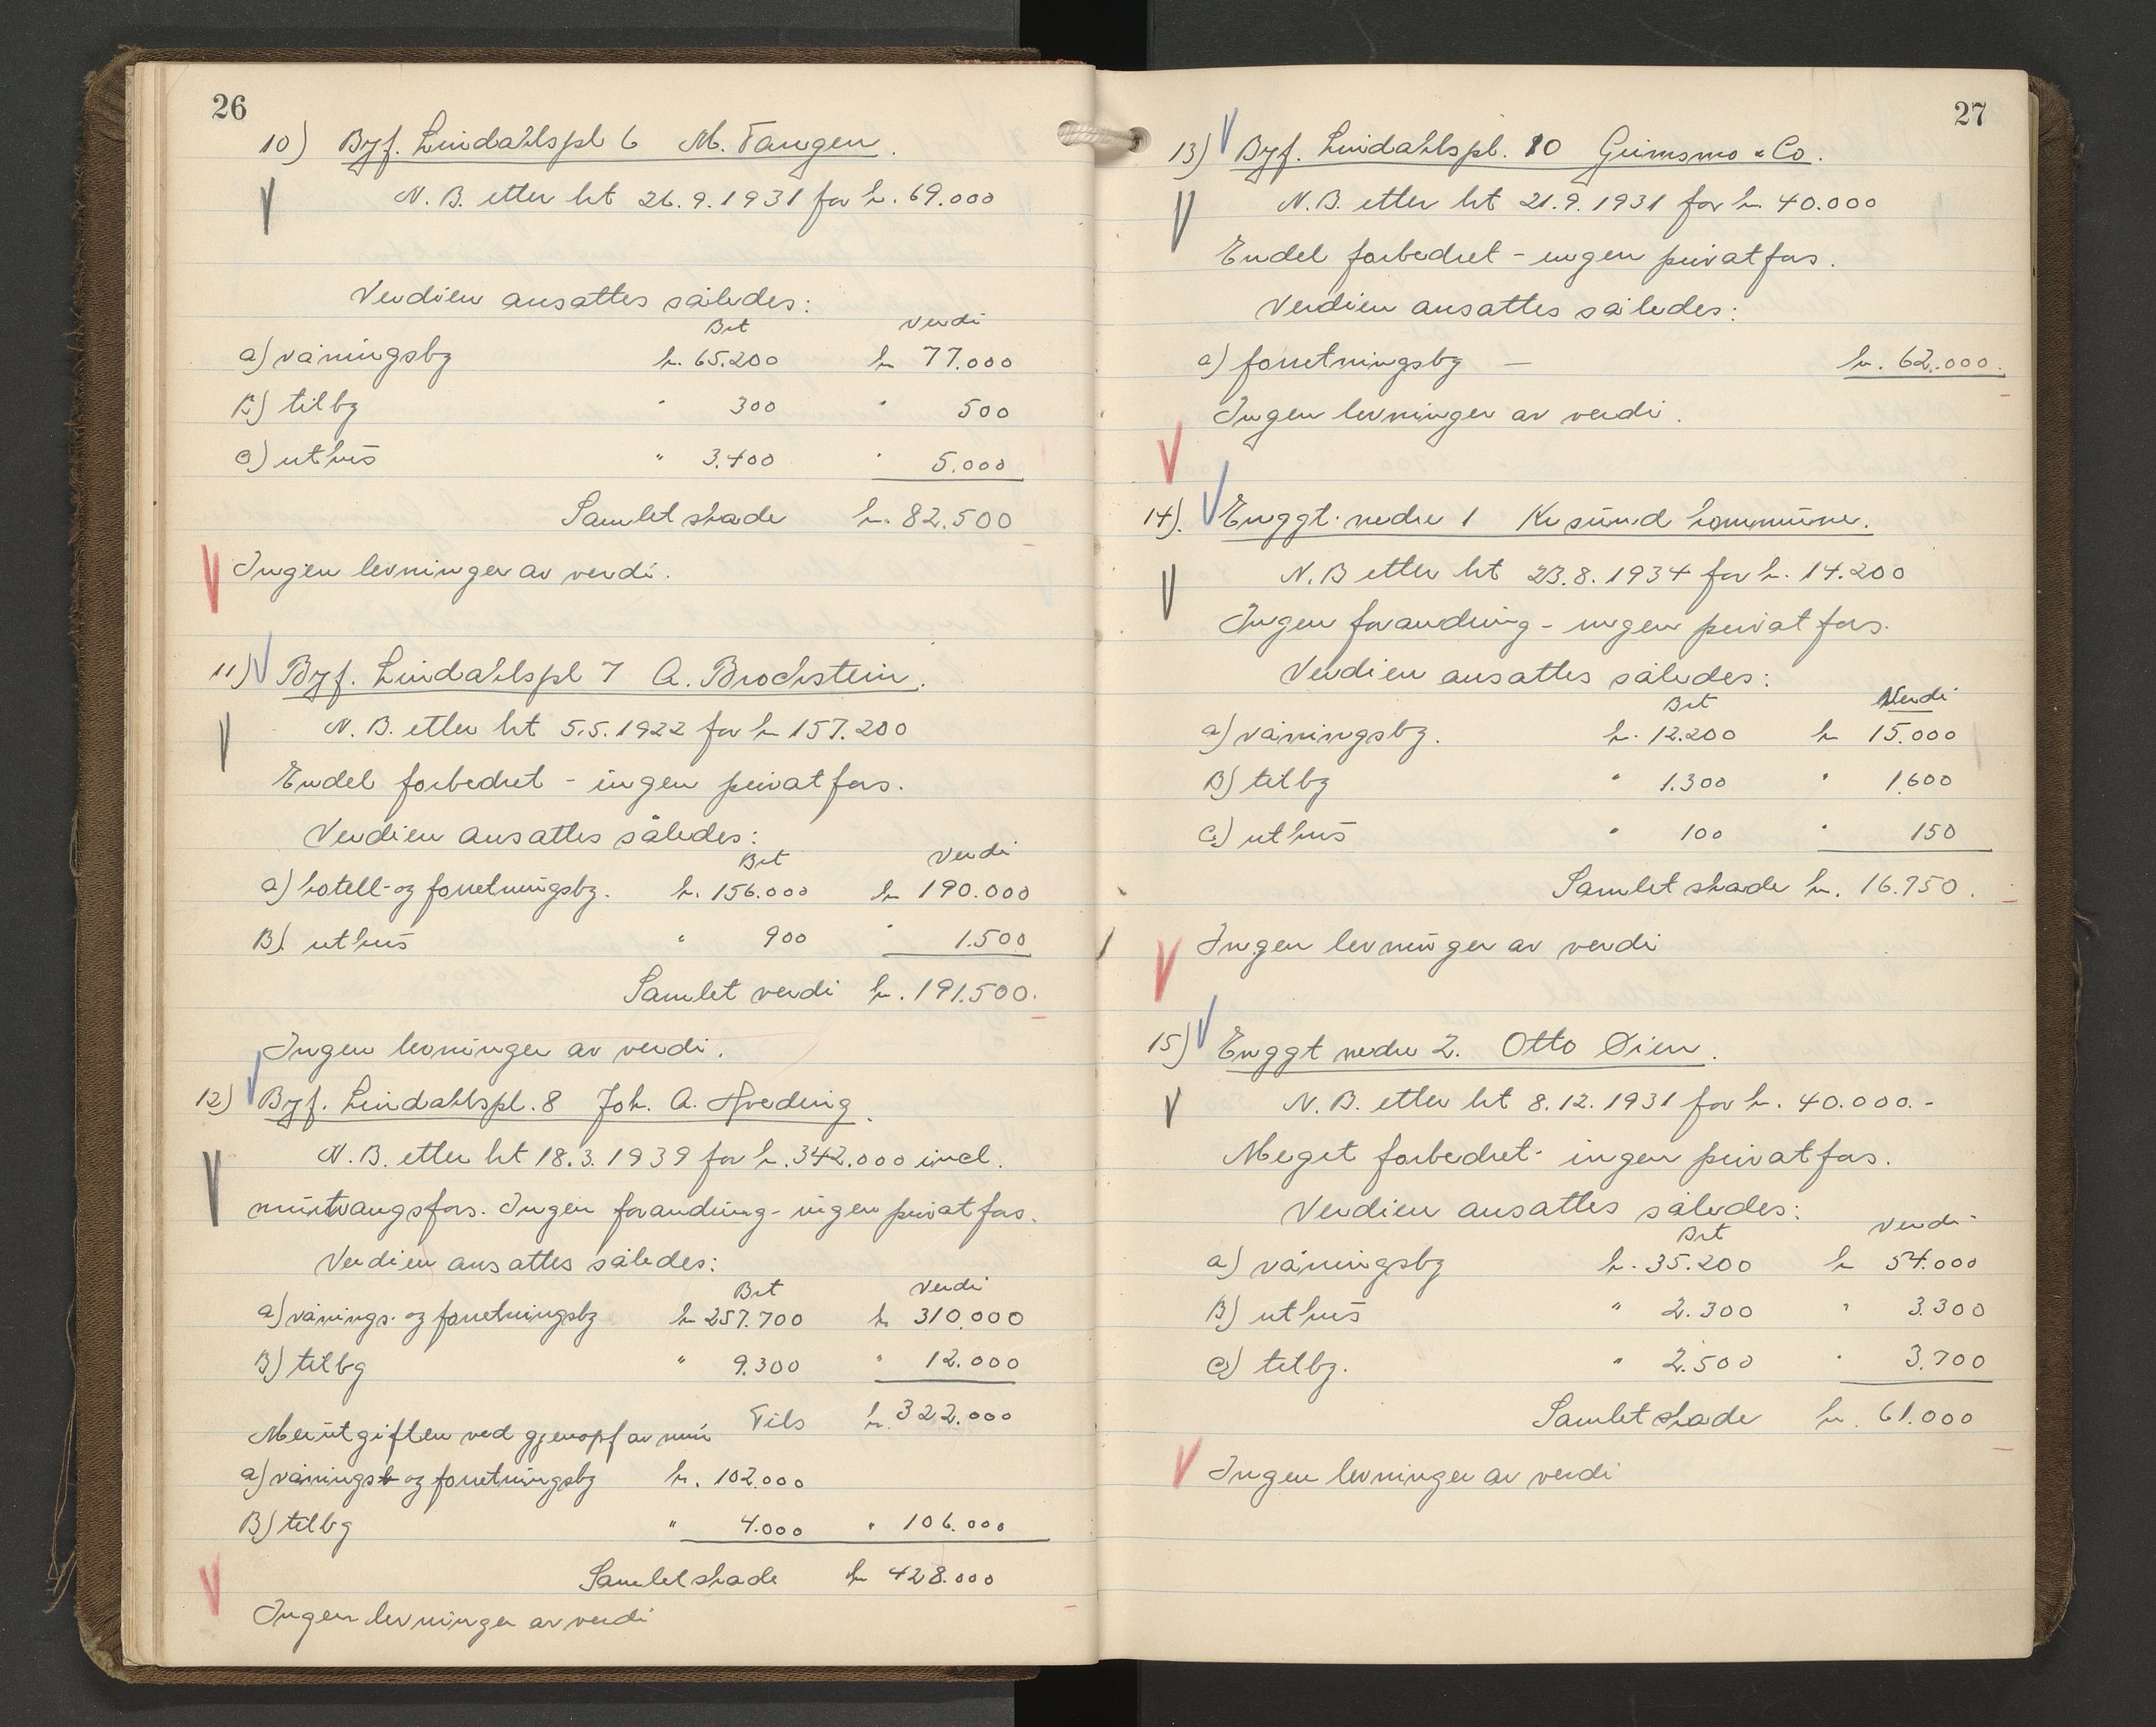 26
10) Byf. Lindahlspl 6 M. Tangen.
N.B. etter ht 26.9.1931 for kr. 69.000
Verdien ansattes således:
Brt Verdi
a) våningsbg kr. 65.200 kr 77.000
B) tilbg " 300 " 500
c) uthus " 3.400 " 5.000
Samlet skade kr. 82.500
Ingen levninger av verdi.
11) Byf. Lindahlspl 7 A. Brochstein.
N.B. etter ht 5.5.1922 for kr 157.200
Endel forbedret - ingen privatfors.
Verdien ansattes således:
Brt Verdi
a) hotell- og forretningsbg. kr. 156.000 kr 190.000
B) uthus " 900 " 1.500
Samlet verdi kr. 191.500.
Ingen levninger av verdi.
12) Byf. Lindahlspl. 8 Joh. A. Hveding.
N.B. etter ht 18.3.1939 for kr. 342.000 incl.
murtvangsfors. Ingen forandring - ingen privatfors.
Verdien ansattes således:
Brt Verdi
a) vånings- og forretningsbg kr 257.700 kr 310.000
B) tilbg " 9.300 " 12.000
Tils kr. 322.000
Merutgiften ved gjenopf av mur
a) vånings- og forretningsbg kr. 102.000
B) tilbg " 4.000 " 106.000
Samlet skade kr 428.000
Ingen levninger av verdi
27
13) Byf. Lindahlspl. 10 Grimsmo & Co.
N.B. etter ht 21.9.1931 for kr. 40.000
Endel forbedret - ingen privatfors.
Verdien ansattes således:
a) forretningsbg — kr. 62.000.
Ingen levninger av verdi.
14). Enggt. nedre 1 Kr sund kommune.
N.B etter ht 23.8.1934 for kr. 14.200
Ingen forandring - ingen privatfors.
Verdien ansattes således:
Brt Verdi
a) våningsbg. kr. 12.200 kr 15.000
B) tilbg " 1.300 " 1.600
c) uthus " 100 " 150
Samlet skade kr. 16.750.
Ingen levninger av verdi
15) Enggt nedre 2. Otto Øien.
N.B. etter ht 8.12.1931 for kr. 40.000.-
Meget forbedret - ingen privatfors.
Verdien ansattes således:
Brt Verdi
a) våningsbg kr. 35.200 kr 54.000
B) uthus " 2.300 " 3.300
c) tilbg. " 2.500 " 3.700
Samlet skade kr. 61.000
Ingen levninger av verdi